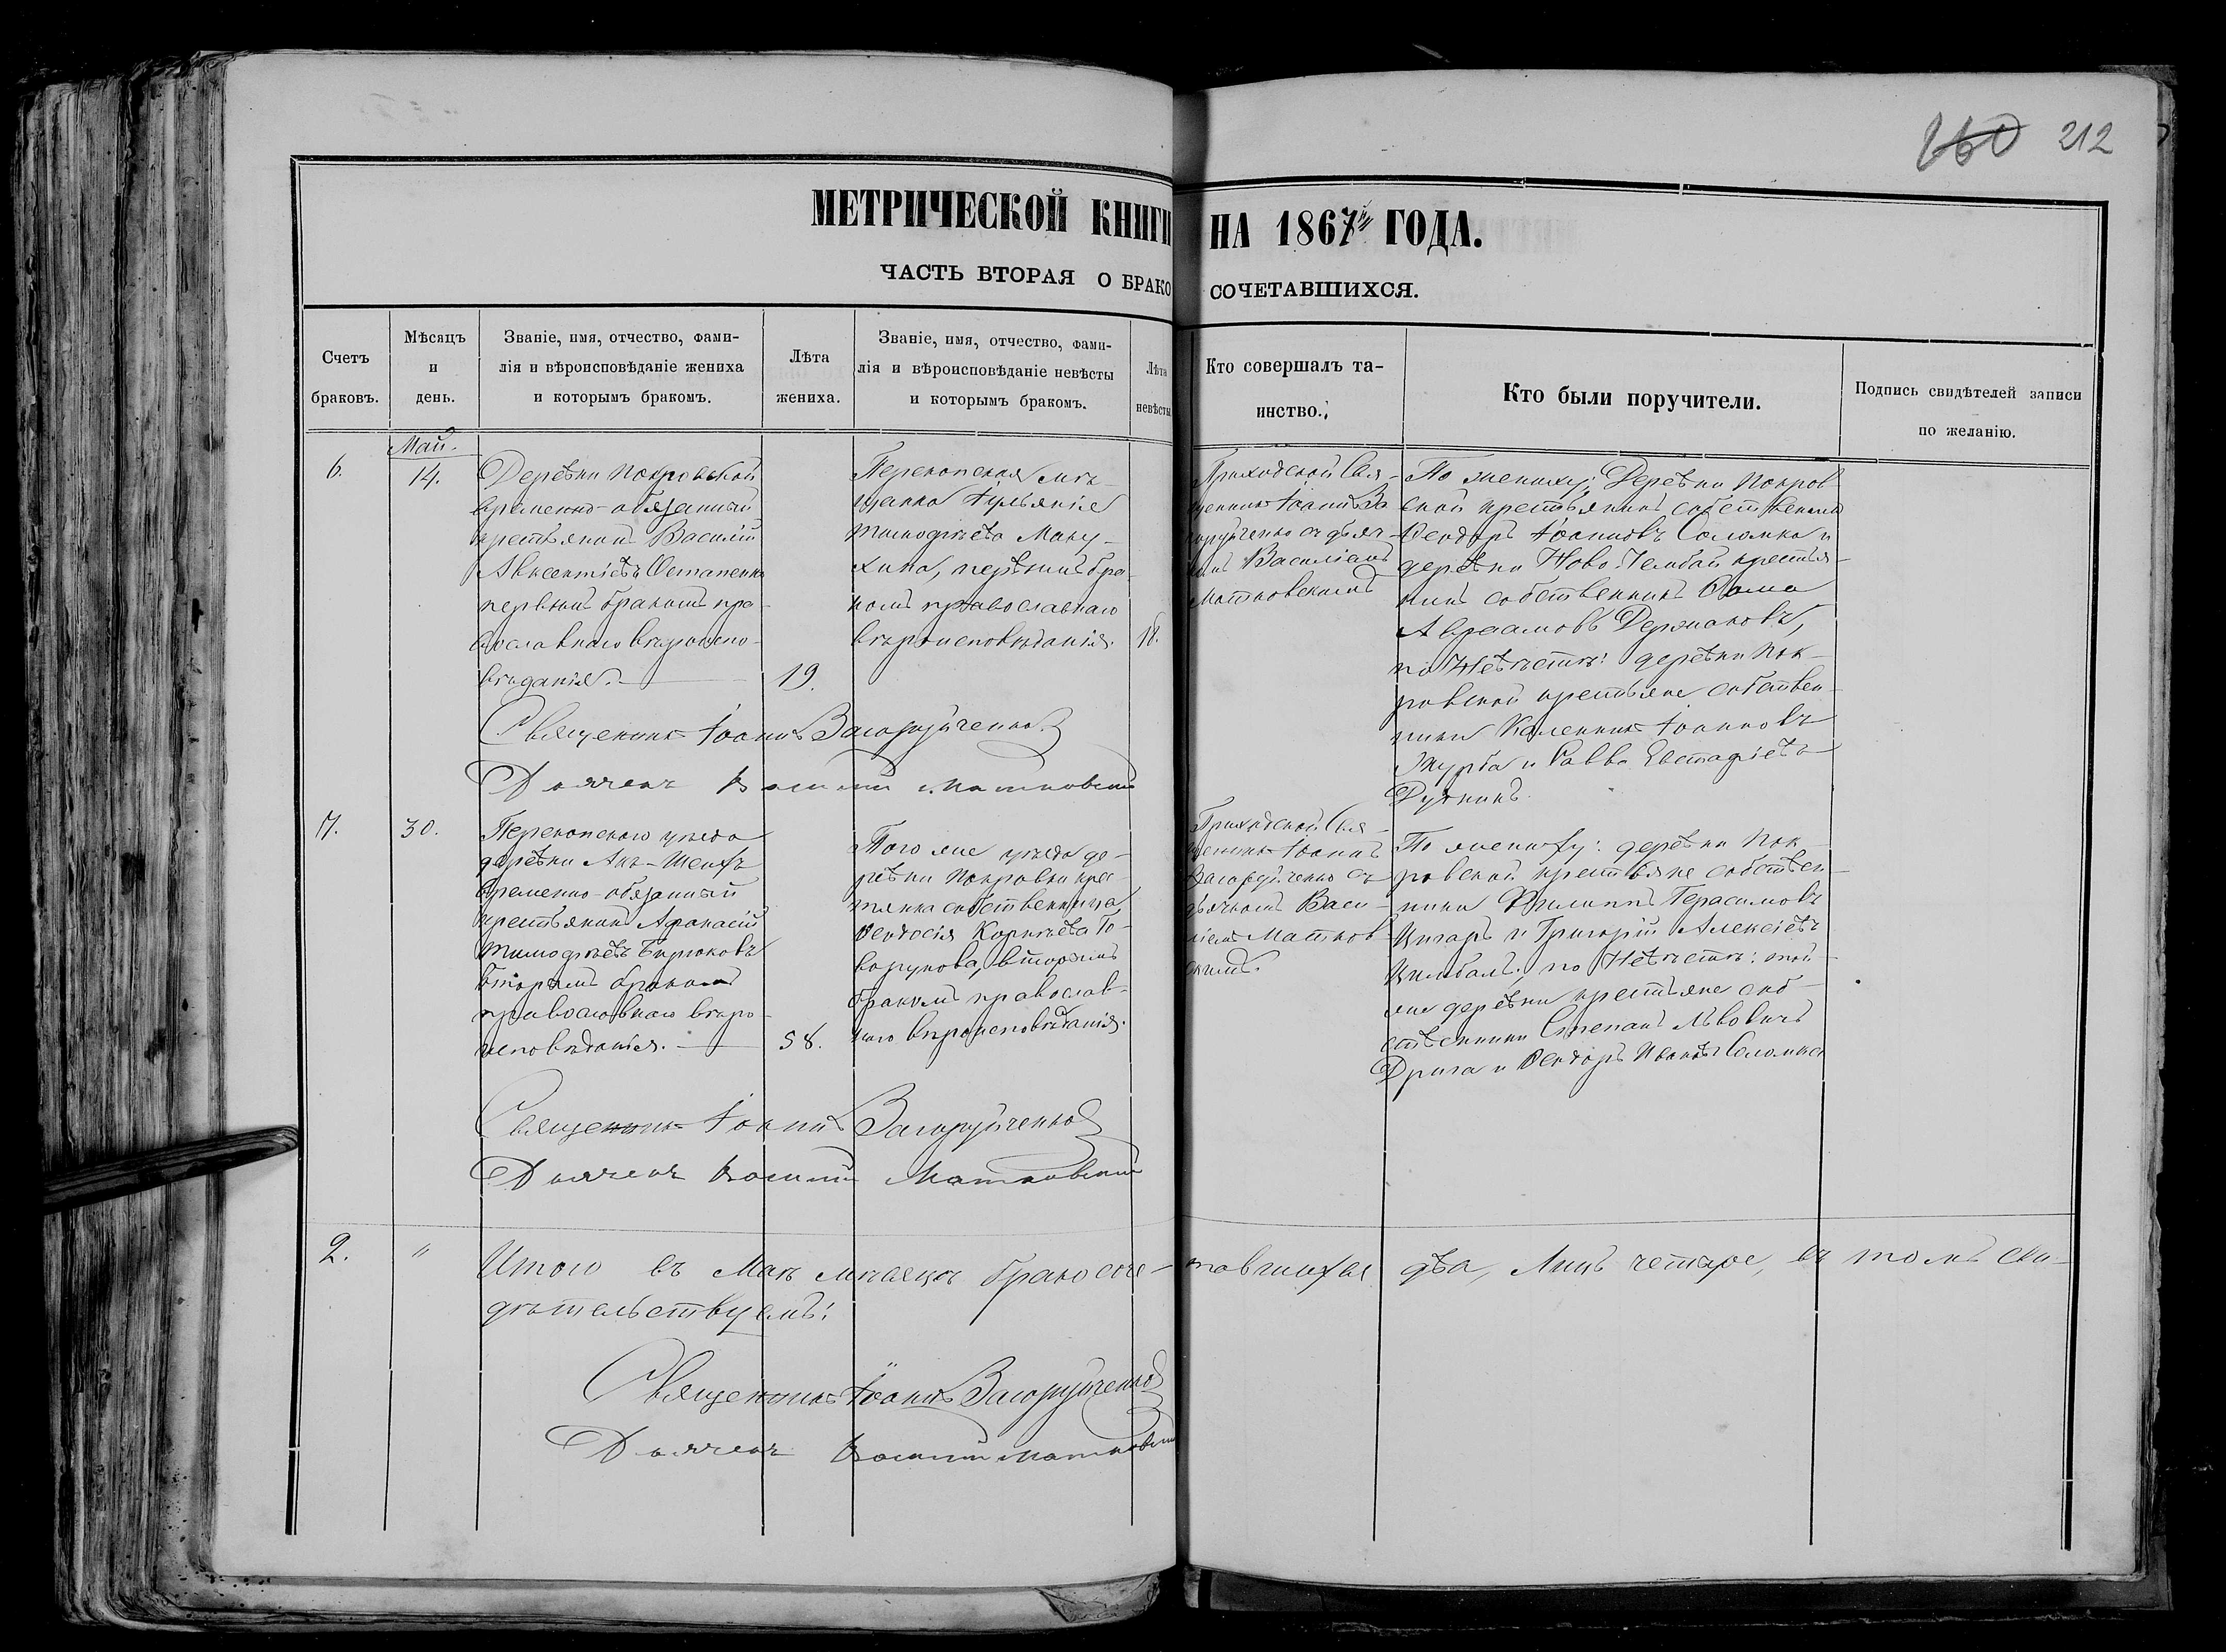 212
МЕТРИЧЕСКОЙ КНИГИ НА 1867 ГОДА.
ЧАСТЬ ВТОРАЯ О БРАКО СОЧЕТАВШИХСЯ.
Счетъ
браковъ.
Мѣсяцъ
и
день.
Званіе, имя, отчество, фами-
лія и вѣроисповѣданіе жениха
и которымъ бракомъ.
Лѣта
жениха.
Званіе, имя, отчество, фами-
лія и вѣроисповѣданіе невѣсты
и которымъ бракомъ.
Лѣта
невѣсты
Кто совершалъ та-
инство.
Кто были поручители.
Подпись свидѣтелей записи
по желанію.
Май.
6.
14.
Деревни Покровской
временно-обязанный
крестьянинъ Василій
Авксентіевъ Остапенко
первымъ бракомъ пра-
вославнаго вѣроиспо-
вѣданія.
19.
Перекопская мѣ-
щанка
Тимофѣева Маку-
хина, первымъ бра-
комъ православнаго
вѣроисповѣданія.
18.
Приходской Свя-
щенникъ Іоаннъ За
горуйченко съ дьяч-
комъ Василіемъ
Матковскимъ
По жениху: Деревни Покров
ской крестьянинъ собственникъ
Феодоръ Іоанновъ Соломка и
деревни Ново-Чембай крестья-
нинъ собственникъ Фома
Авраамовъ Держаковъ,
по Невѣстѣ: деревни Пок-
ровской крестьяне собствен-
ники Каленникъ Іоанновъ
Журба и Савва Евстафіевъ
Священникъ Іоаннъ Загоруйченко
Дьячекъ Василій Матковскій
7.
30.
Перекопскаго уѣзда
деревни Акъ-Шеихъ
временно-обязанный
крестьянинъ Афанасій
Тимофѣевъ Бирюковъ
вторымъ бракомъ
православнаго вѣро-
исповѣданія.
58.
Того же уѣзда де-
ревни Покровки крес-
тьянка собственница
Феодосія Корнѣева Го-
ворунова, вторымъ
бракомъ православ-
наго вѣроисповѣданія.
Приходской Свя-
щенникъ Іоаннъ
Загоруйченко съ
дьячкомъ Васи-
ліемъ Матков-
скимъ.
По жениху: деревни Пок-
ровской крестьяне собствен-
ники Филиппъ Герасимовъ
Цигаръ и Григорій Алексіевъ
Цимбалъ; по Невѣстѣ: той-
же деревни крестьяне соб-
ственники Степанъ Львовичъ
Дрига и Феодоръ Ивановъ Соломка
Священникъ Іоаннъ Загоруйченко
Дьячекъ Василій Матковскій
2. " Итого въ Маѣ мѣсяцѣ бракосоче-тавшихся два, Лицъ четыре, въ томъ сви-
дѣтельствуемъ:
Священникъ Іоаннъ Загоруйченко
Дьячекъ Василій Матковскій